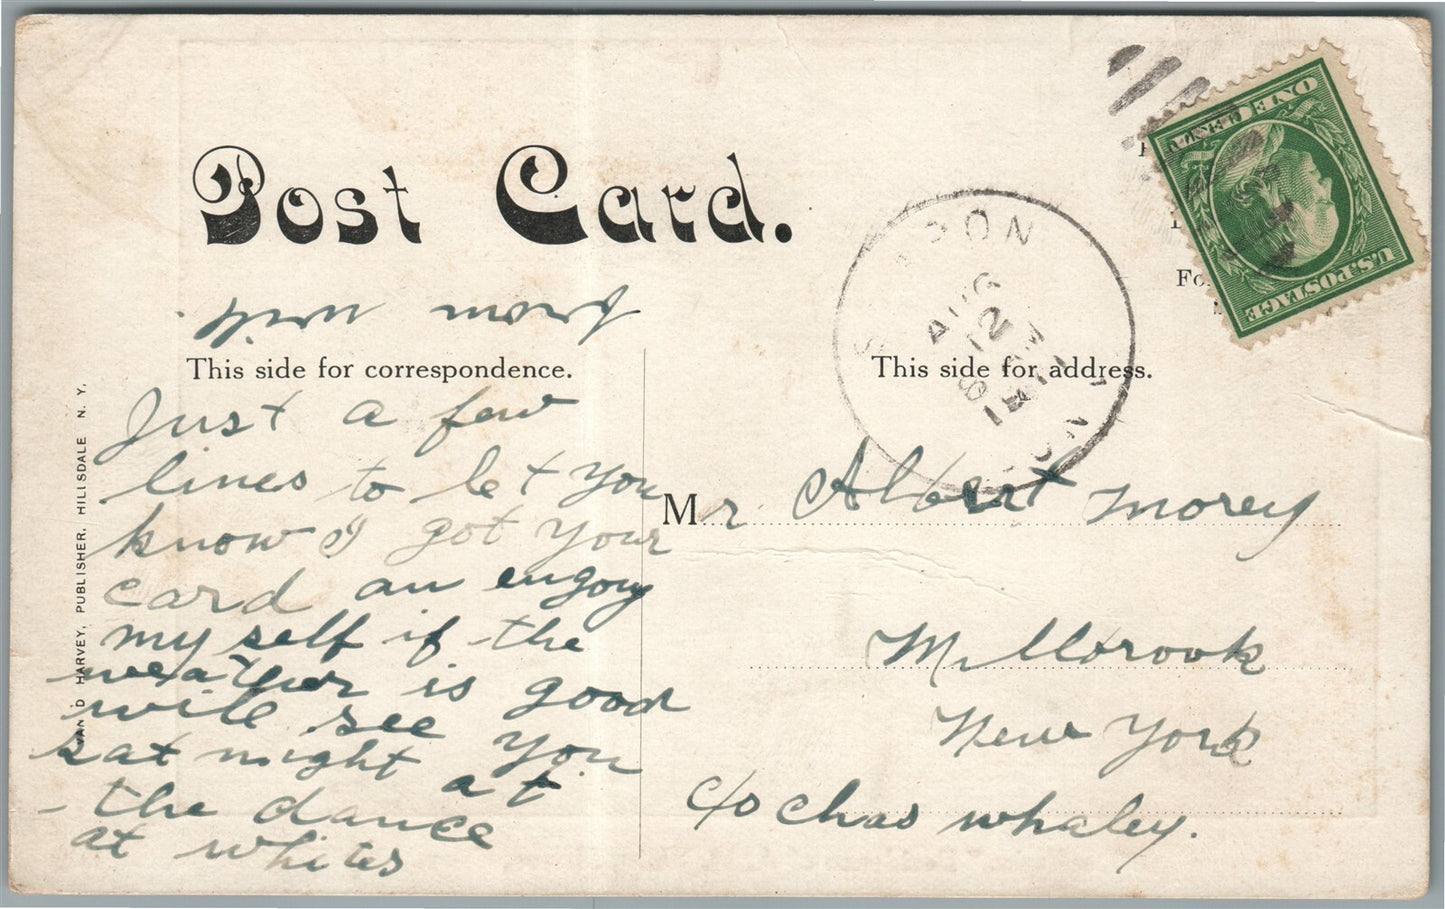 Post Card.
This side for correspondence.
Just a few
lines to let you
know I got your
card an engoy
my self if the
weather is good
will see you
sat night at
the dance
at whites
from
VAN D HARVEY, PUBLISHER, HILLSDALE N. Y.
This side for address.
AUG
12
8 AM
ONE CENT
U.S. POSTAGE
Mr Albert Morey
Millbrook
New York
c/o Chas Whaley.